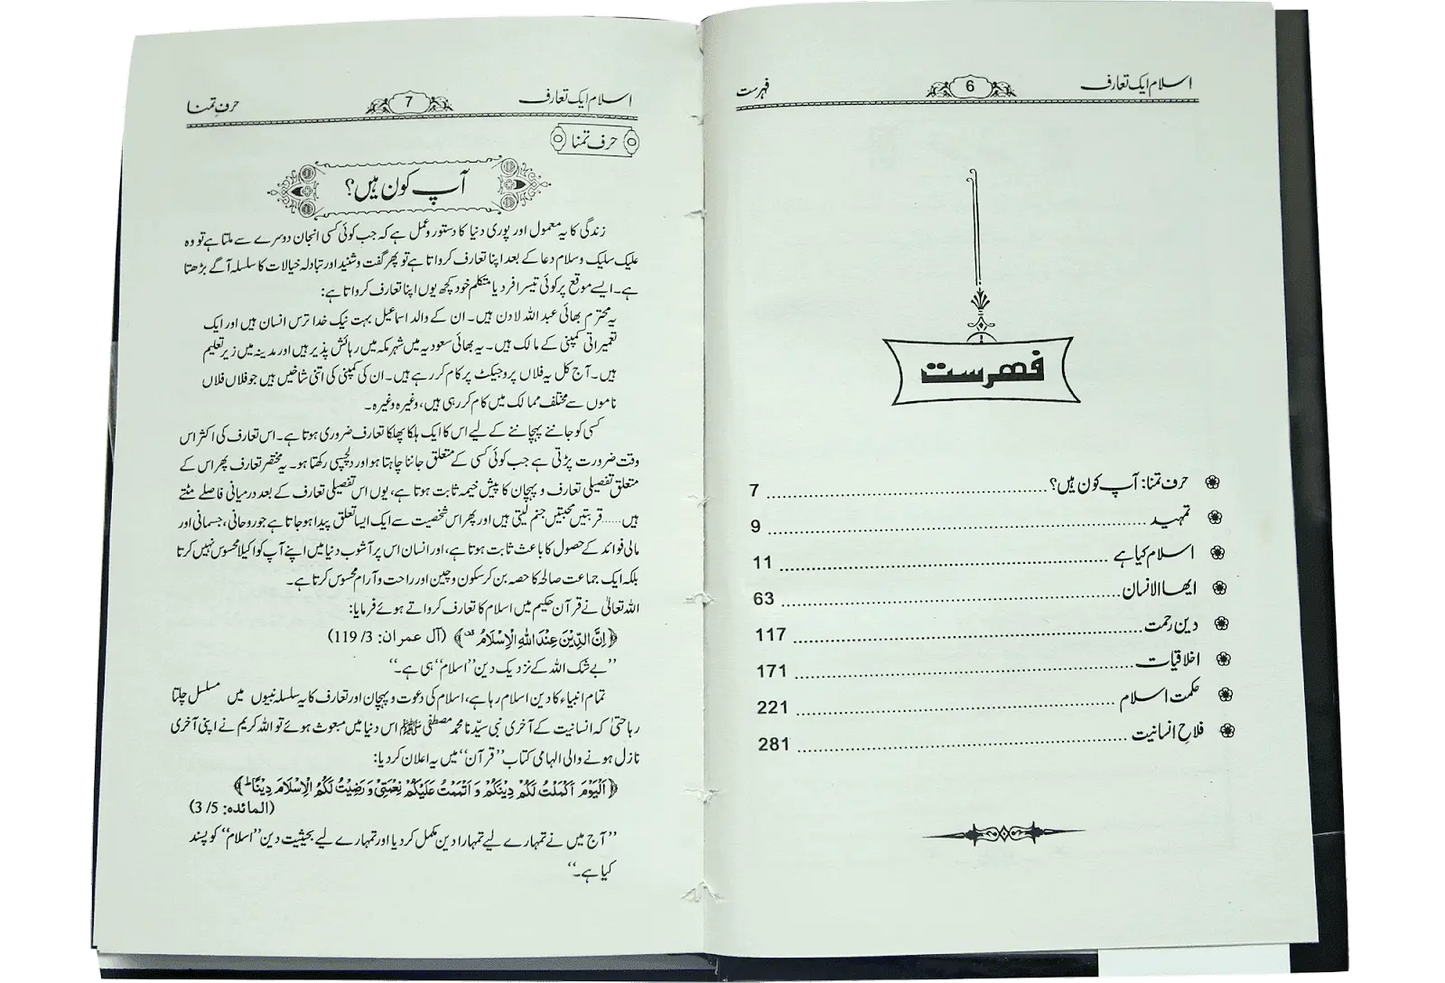 اسلام ایک تعارف 6 فہرست
فہرست
حرف تمنا: آپ کون ہیں؟ 7
تمہید 9
اسلام کیا ہے 11
ایھا الانسان 63
دین رحمت 117
اخلاقیات 171
حکمت اسلام 221
فلاحِ انسانیت 281
اسلام ایک تعارف 7 حرفِ تمنا
حرف تمنا
آپ کون ہیں؟
زندگی کا یہ معمول اور پوری دنیا کا دستور و عمل ہے کہ جب کوئی کسی انجان دوسرے سے ملتا ہے تو وہ
علیک سلیک و سلام دعا کے بعد اپنا تعارف کرواتا ہے تو پھر گفت و شنید اور تبادلہ خیالات کا سلسلہ آگے بڑھتا
ہے۔ ایسے موقع پر کوئی تیسرا فرد یا متکلم خود کچھ یوں اپنا تعارف کرواتا ہے:
یہ محترم بھائی عبد اللہ لادن ہیں۔ ان کے والد اسماعیل بہت نیک خدا ترس انسان ہیں اور ایک
تعمیراتی کمپنی کے مالک ہیں۔ یہ بھائی سعودیہ میں شہر مکہ میں رہائش پذیر ہیں اور مدینہ میں زیر تعلیم
ہیں۔ آج کل یہ فلاں پروجیکٹ پر کام کر رہے ہیں۔ ان کی کمپنی کی اتنی شاخیں ہیں جو فلاں فلاں
ناموں سے مختلف ممالک میں کام کر رہی ہیں، وغیرہ وغیرہ۔
کسی کو جاننے پہچاننے کے لیے اس کا ایک ہلکا پھلکا تعارف ضروری ہوتا ہے۔ اس تعارف کی اکثر اس
وقت ضرورت پڑتی ہے جب کوئی کسی کے متعلق جاننا چاہتا ہو اور دلچسپی رکھتا ہو۔ یہ مختصر تعارف پھر اس کے
متعلق تفصیلی تعارف و پہچان کا پیش خیمہ ثابت ہوتا ہے، یوں اس تفصیلی تعارف کے بعد درمیانی فاصلے مٹتے
ہیں......قربتیں محبتیں جنم لیتی ہیں اور پھر اس شخصیت سے ایک ایسا تعلق پیدا ہو جاتا ہے جو روحانی، جسمانی اور
مالی فوائد کے حصول کا باعث ثابت ہوتا ہے، اور انسان اس پر آشوب دنیا میں اپنے آپ کو اکیلا محسوس نہیں کرتا
بلکہ ایک جماعت صالحہ کا حصہ بن کر سکون و چین اور راحت و آرام محسوس کرتا ہے۔
اللہ تعالیٰ نے قرآن حکیم میں اسلام کا تعارف کرواتے ہوئے فرمایا:
﴿اِنَّ الدِّيْنَ عِنْدَ اللهِ الْاِسْلَامُ﴾ (آل عمران: 3/ 119)
’’بے شک اللہ کے نزدیک دین ’’اسلام‘‘ ہی ہے۔‘‘
تمام انبیاء کا دین اسلام رہا ہے، اسلام کی دعوت و پہچان اور تعارف کا یہ سلسلہ نبیوں میں مسلسل چلتا
رہا حتیٰ کہ انسانیت کے آخری نبی سیّدنا محمد مصطفی ﷺ اس دنیا میں مبعوث ہوئے تو اللہ کریم نے اپنی آخری
نازل ہونے والی الہامی کتاب ’’قرآن‘‘ میں یہ اعلان کر دیا:
﴿اَلْيَوْمَ اَكْمَلْتُ لَكُمْ دِيْنَكُمْ وَ اَتْمَمْتُ عَلَيْكُمْ نِعْمَتِيْ وَ رَضِيْتُ لَكُمُ الْاِسْلَامَ دِيْنًا ؕ﴾
(المائدہ: 5/ 3)
’’آج میں نے تمہارے لیے تمہارا دین مکمل کر دیا اور تمہارے لیے بحیثیت دین ’’اسلام‘‘ کو پسند
کیا ہے۔‘‘